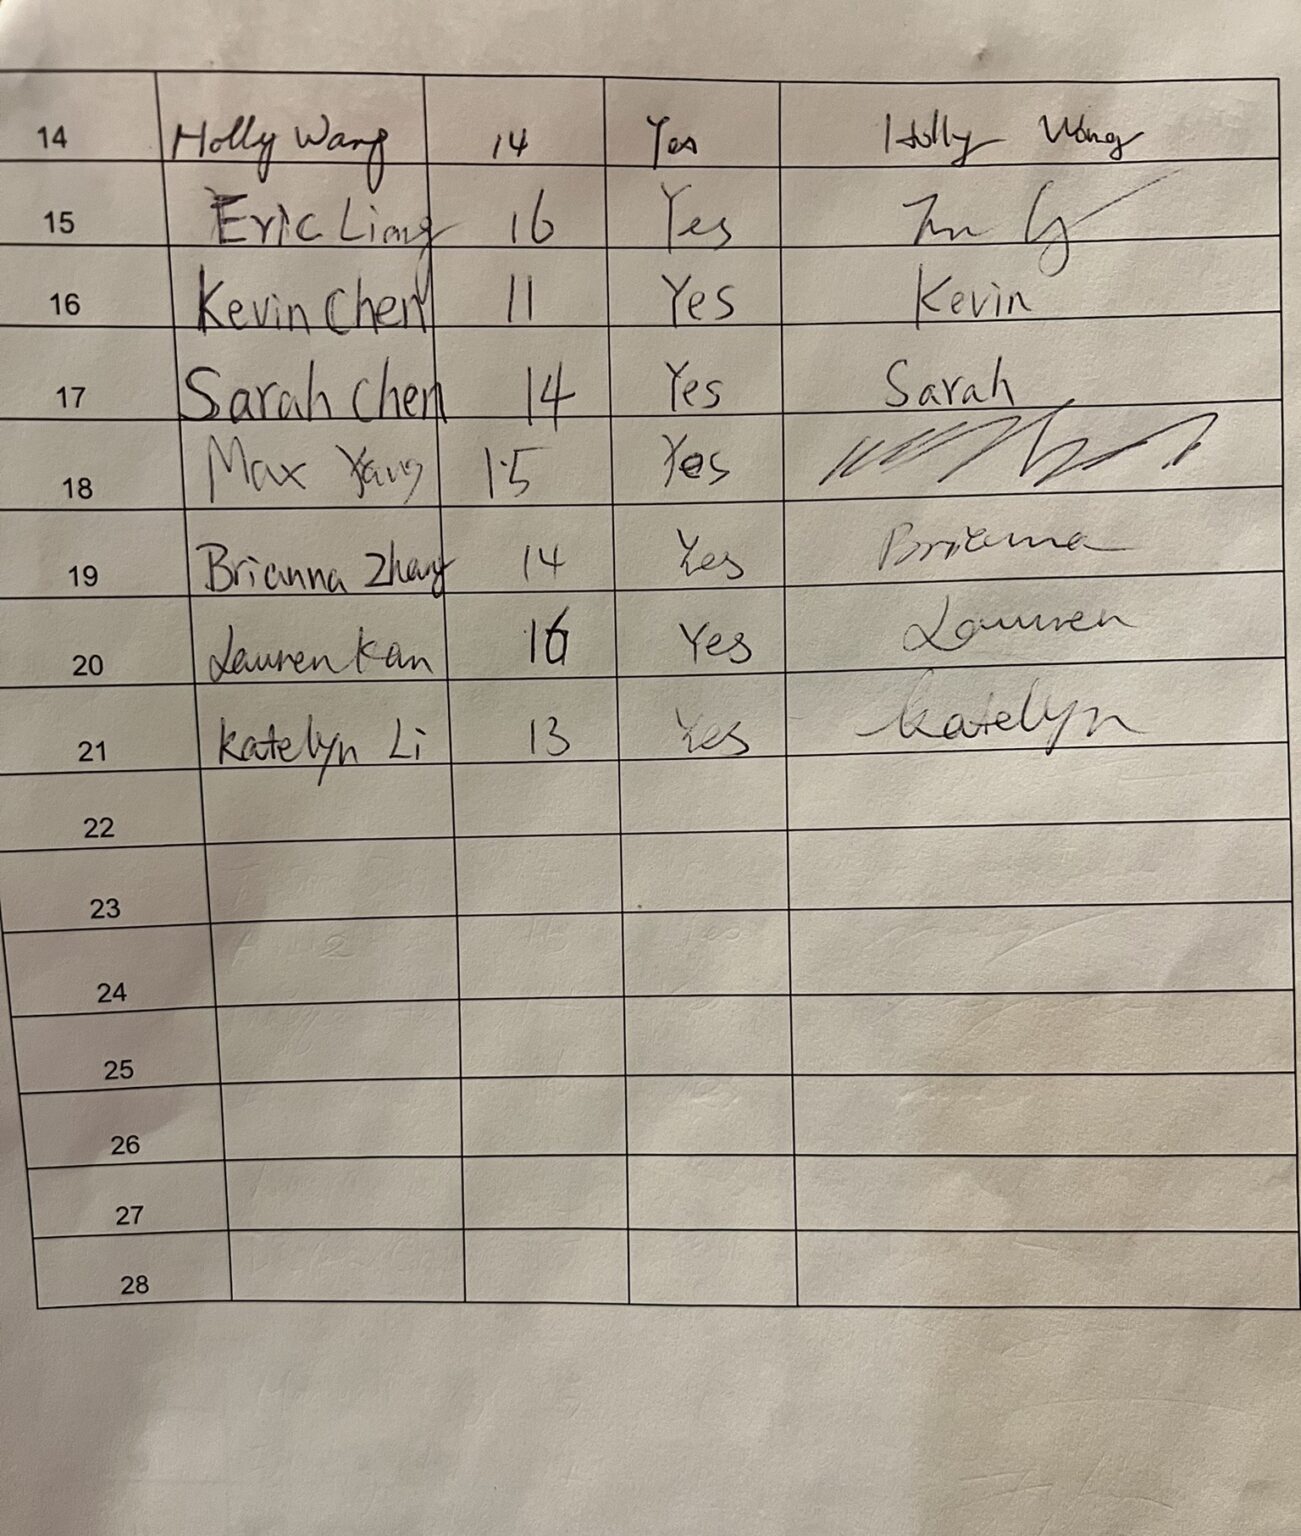 14 Holly Wang 14 Yes Holly Wang
15 Eric Liang 16 Yes
16 Kevin Chen 11 Yes Kevin
17 Sarah Chen 14 Yes Sarah
18 Max Yang 15 Yes
19 Brianna Zhang 14 Yes Brianna
20 Lauren Kan 16 Yes Lauren
21 Katelyn Li 13 Yes Katelyn
22
23
24
25
26
27
28